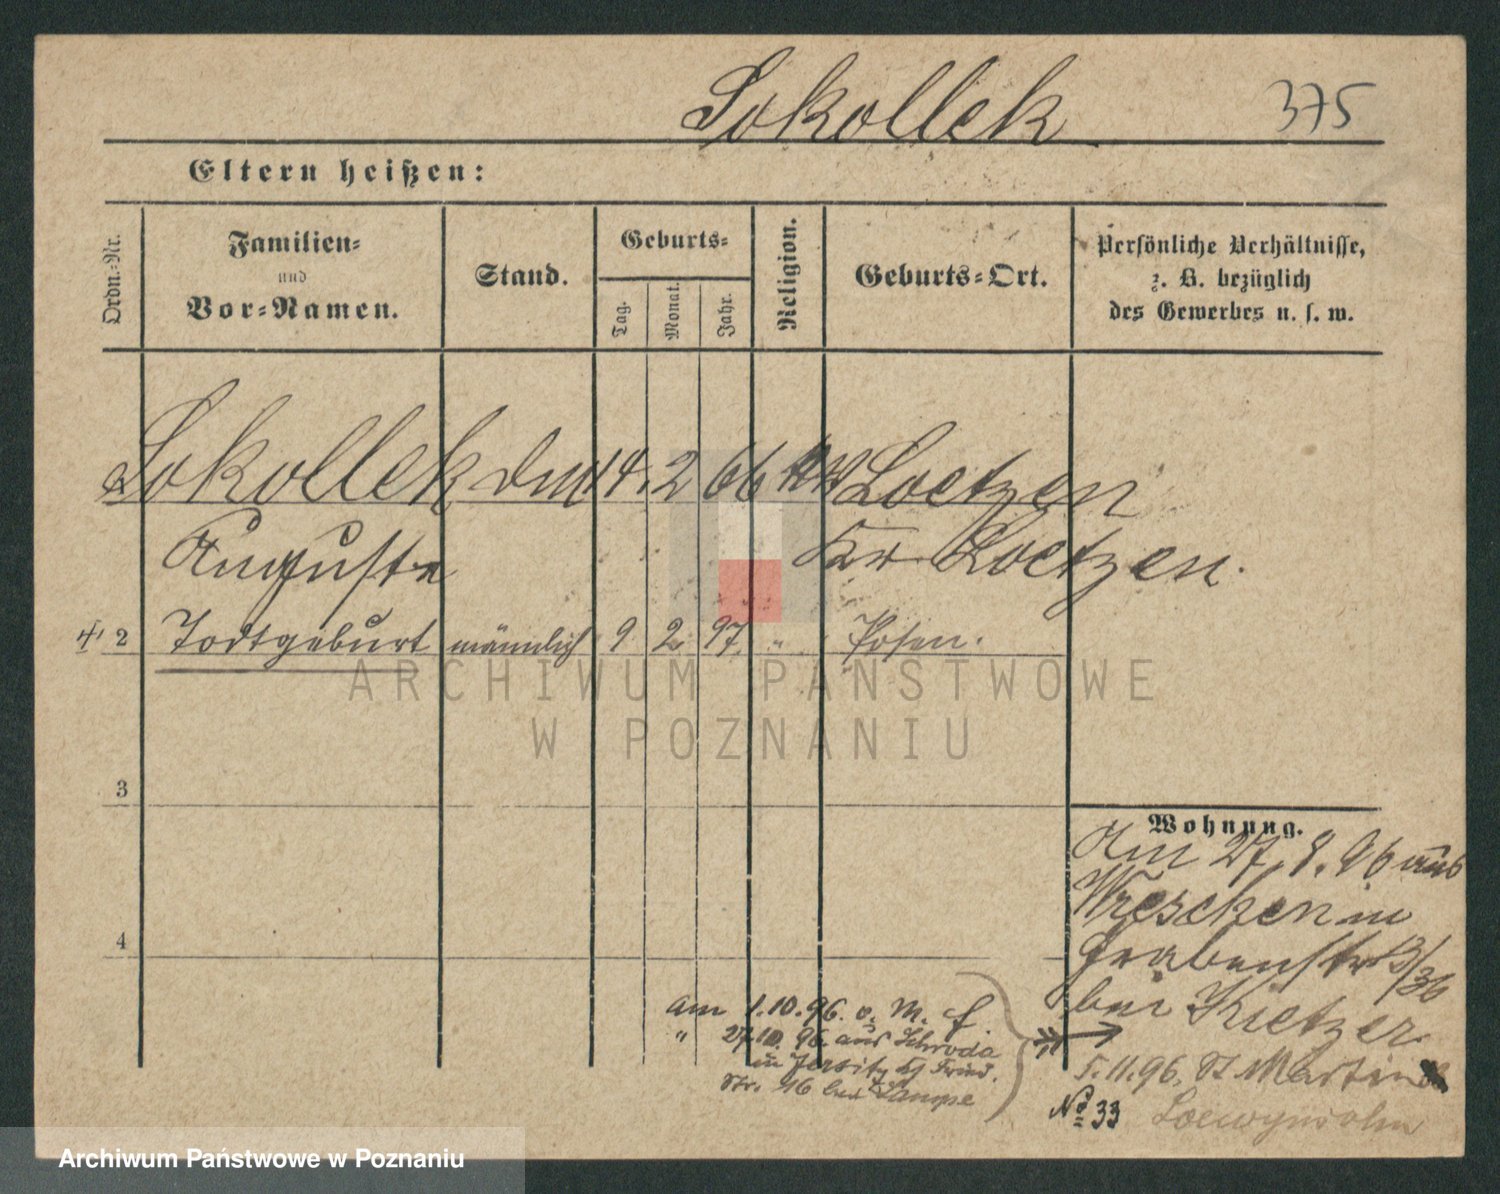 Sokollek 375
Eltern heißen:
Ordn.-Nr.
Familien-
und
Vor-Namen.
Stand.
Geburts-
Tag.
Monat.
Jahr.
Religion.
Geburts-Ort.
Persönliche Verhältnisse,
z. B. bezüglich
des Gewerbes u. s. w.
Sokollek 14. 2 66 Loetzen
Auguste Kr Loetzen.
2 Todtgeburt männlich 9 2 97 " Posen.
ARCHIWUM PAŃSTWOWE
W POZNANIU
3
4
Wohnung.
Am 27. 8. 96 aus
Wreschen in
Grabenstr 13/36
bei Kietzer.
am 1.10.96. v. M. f.
" 27.10. 96. aus Schroda
in Jersitz Fried.
Str. 16 bei Lampe
5.11.96. St Martin
No 33
Archiwum Państwowe w Poznaniu